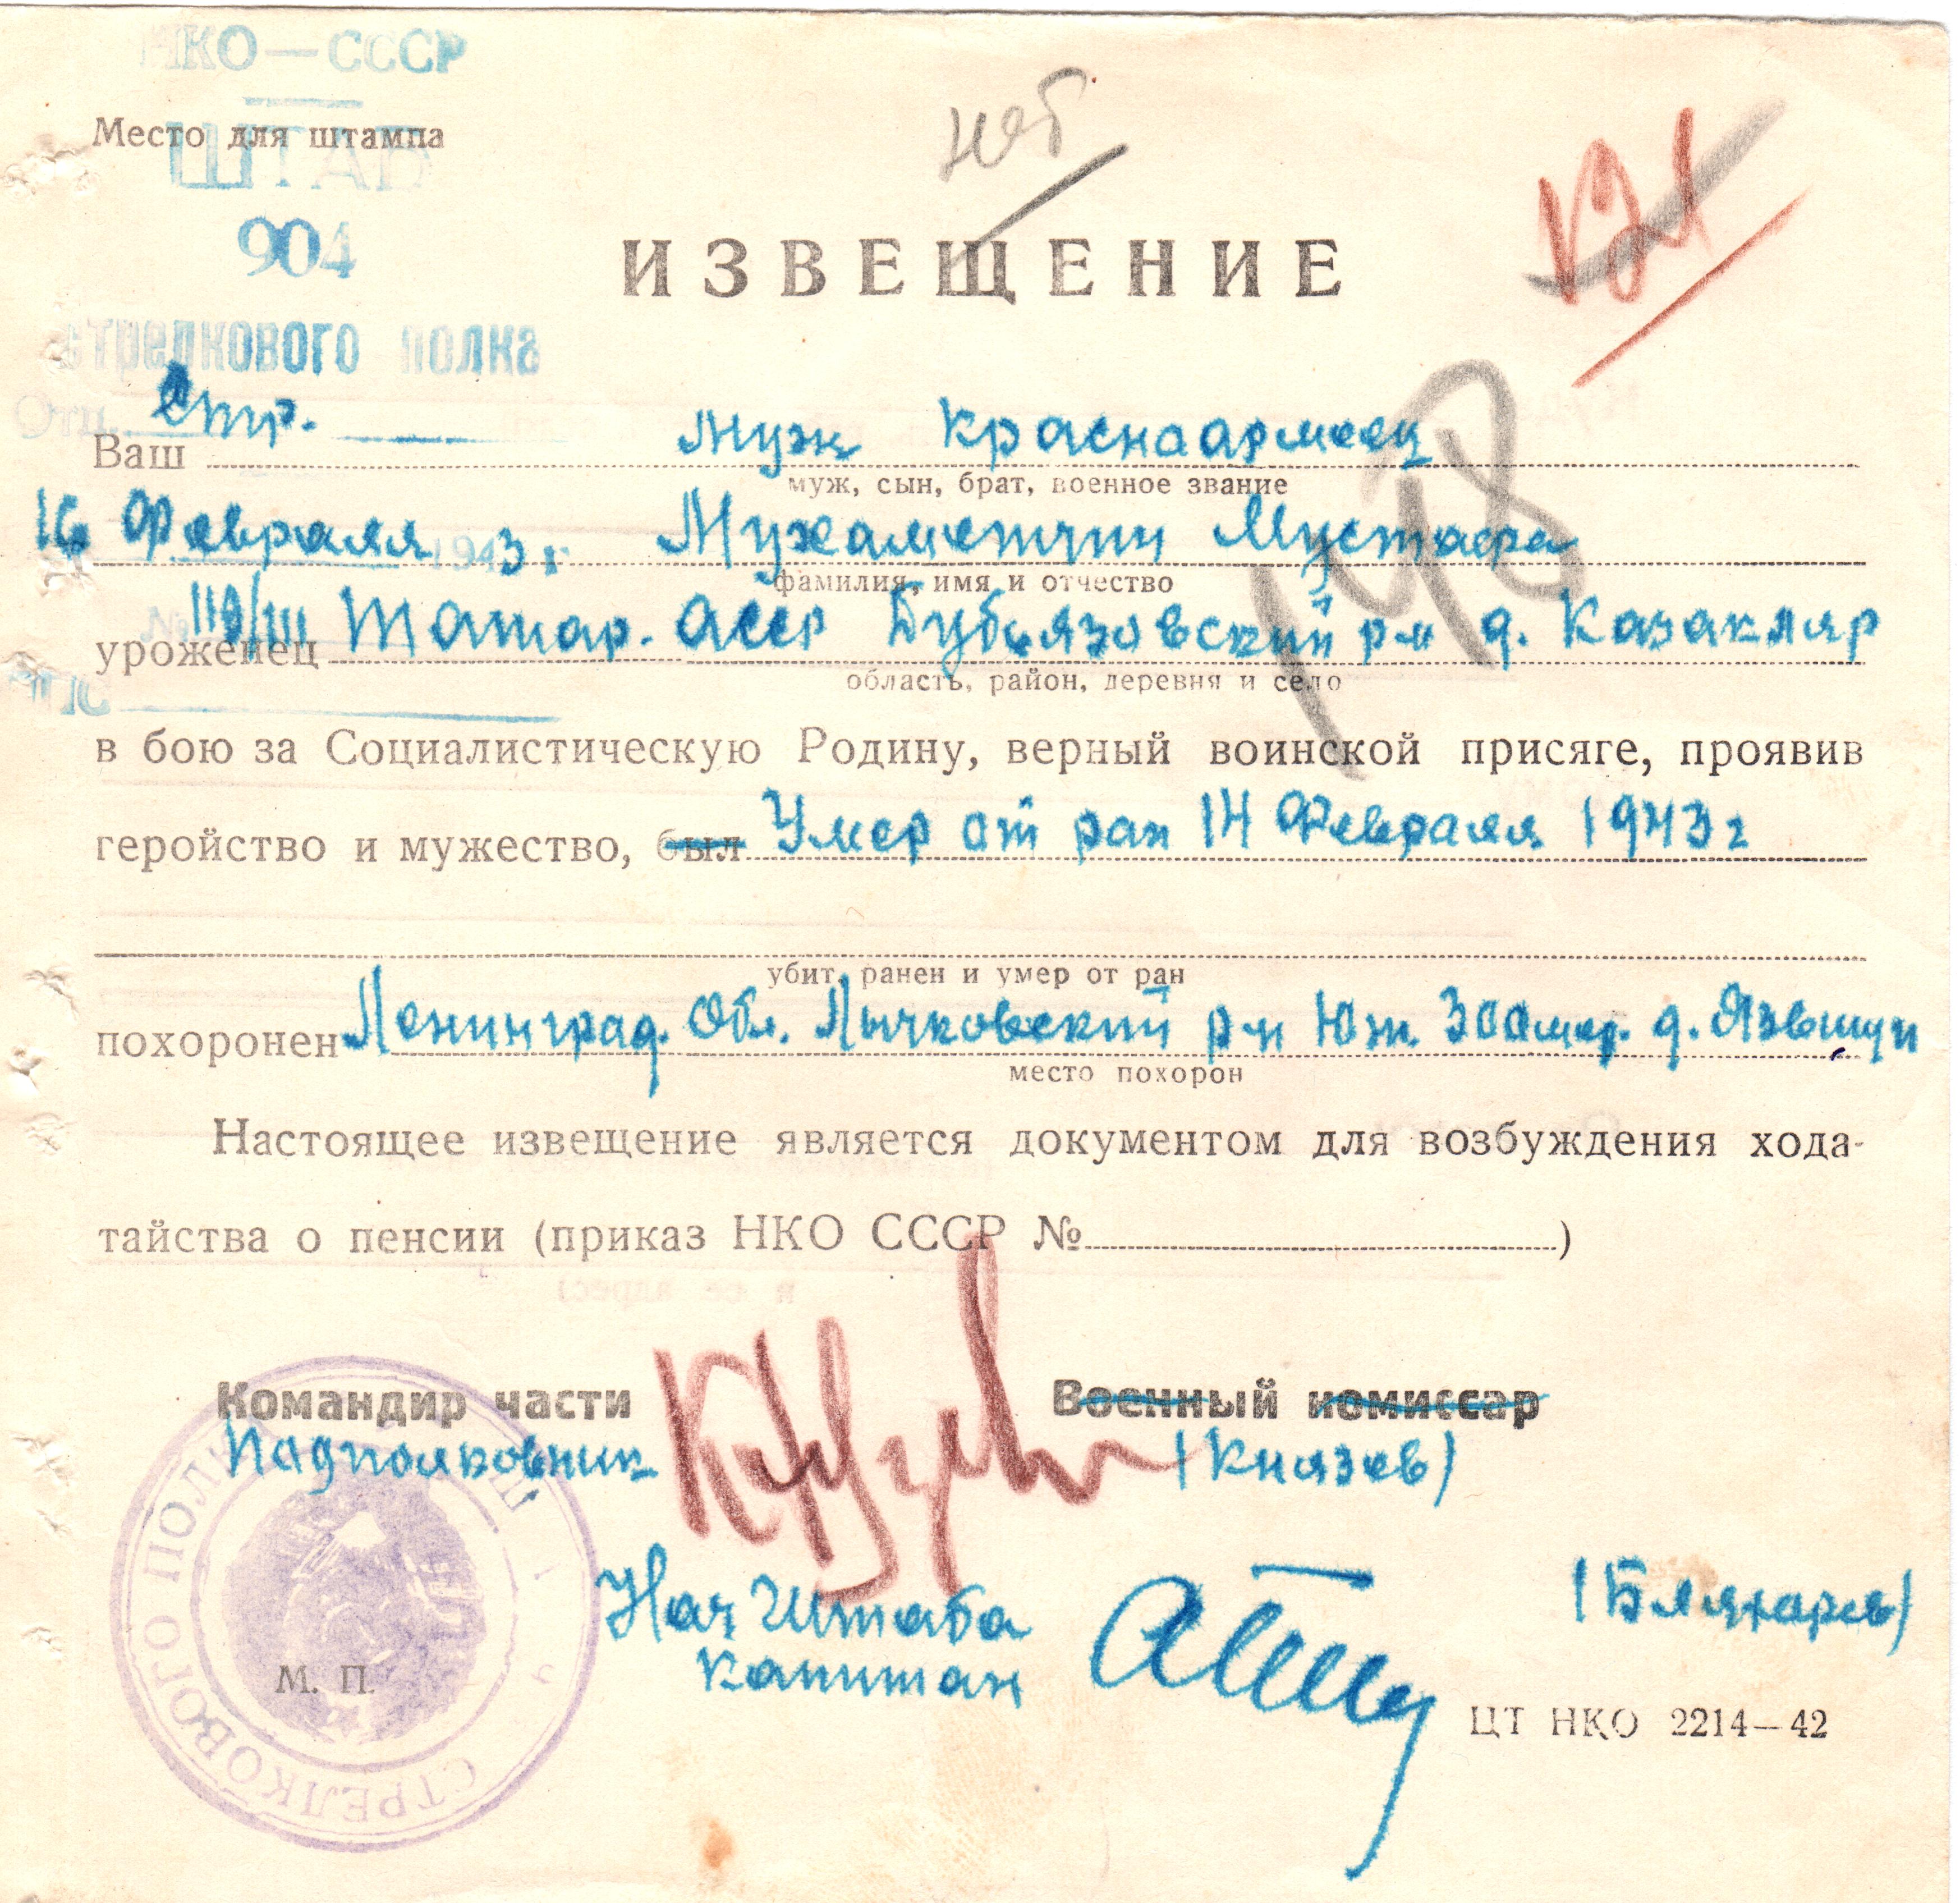 НКО—СССР
Место для штампа
ШТАБ
904
ИЗВЕЩЕНИЕ
стрелкового полка
Отп. Стр.
Ваш муж краснаармеец
муж, сын, брат, военное звание
16 Февраля 1943 г. Мухаметчин Мустафа
фамилия, имя и отчество
№ 119/III
уроженец Татар. АССР Дубъязовский р-н д. Казакляр
область, район, деревня и село
в бою за Социалистическую Родину, верный воинской присяге, проявив
геройство и мужество, был Умер от ран 14 Февраля 1943 г
убит, ранен и умер от ран
похоронен Ленинград. Обл. Лычковский р-н Юж. 300 мер. д.
место похорон
Настоящее извещение является документом для возбуждения хода-
тайства о пенсии (приказ НКО СССР № )
Командир части Военный комиссар
Падполковник (Князев)
Нач Штаба
капитан
М. П.
ЦТ НКО 2214—42
СТРЕЛКОВОГО ПОЛКА